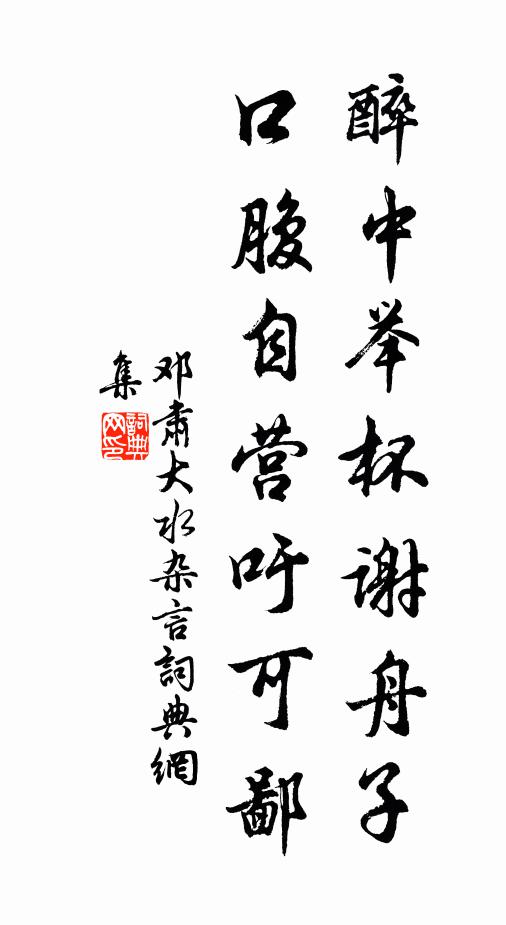 醉中举杯谢舟子
口腹自营吁可鄙
邓肃大水杂言詞典網
集
詞典
网印